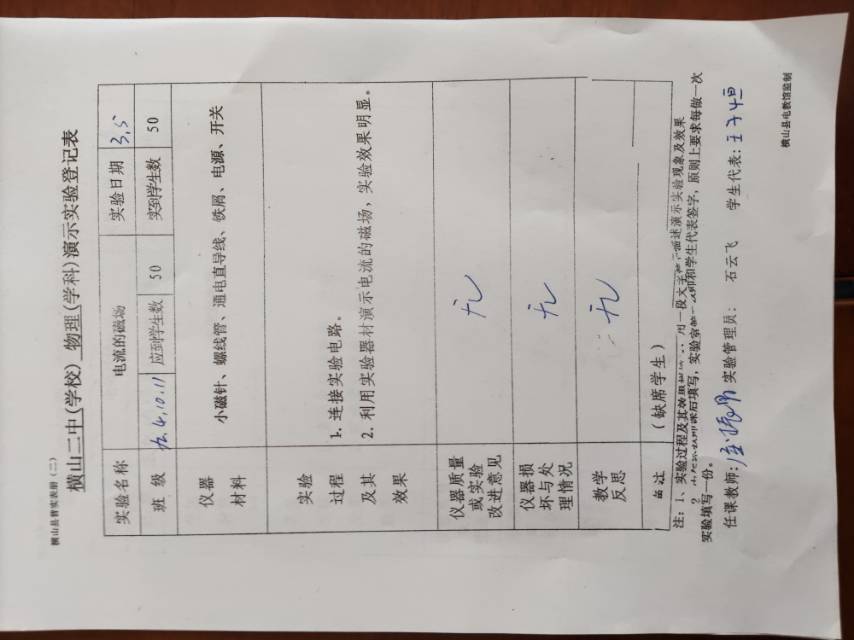 横山县普实表册（二）
横山二中(学校) 物理(学科)演示实验登记表
实验名称 电流的磁场 实验日期 3,5
班 级 4,10.11 应到学生数 50 实到学生数 50
仪器
材料
小磁针、螺线管、通电直导线、铁屑、电源、开关
实验
过程
及其
效果
1. 连接实验电路。
2. 利用实验器材演示电流的磁场，实验效果明显。
仪器质量
或实验
改进意见
无
仪器损
坏与处
理情况
无
教学
反思
无
备注 （缺席学生）
注：1、实验过程及其效果 用一段文字 描述演示实验现象及效果
2 课后填写，实验室 和学生代表签字，原则上要求每做一次
实验填写一份。
任课教师: 实验管理员: 石云飞 学生代表: 王子恒
横山县电教馆监制